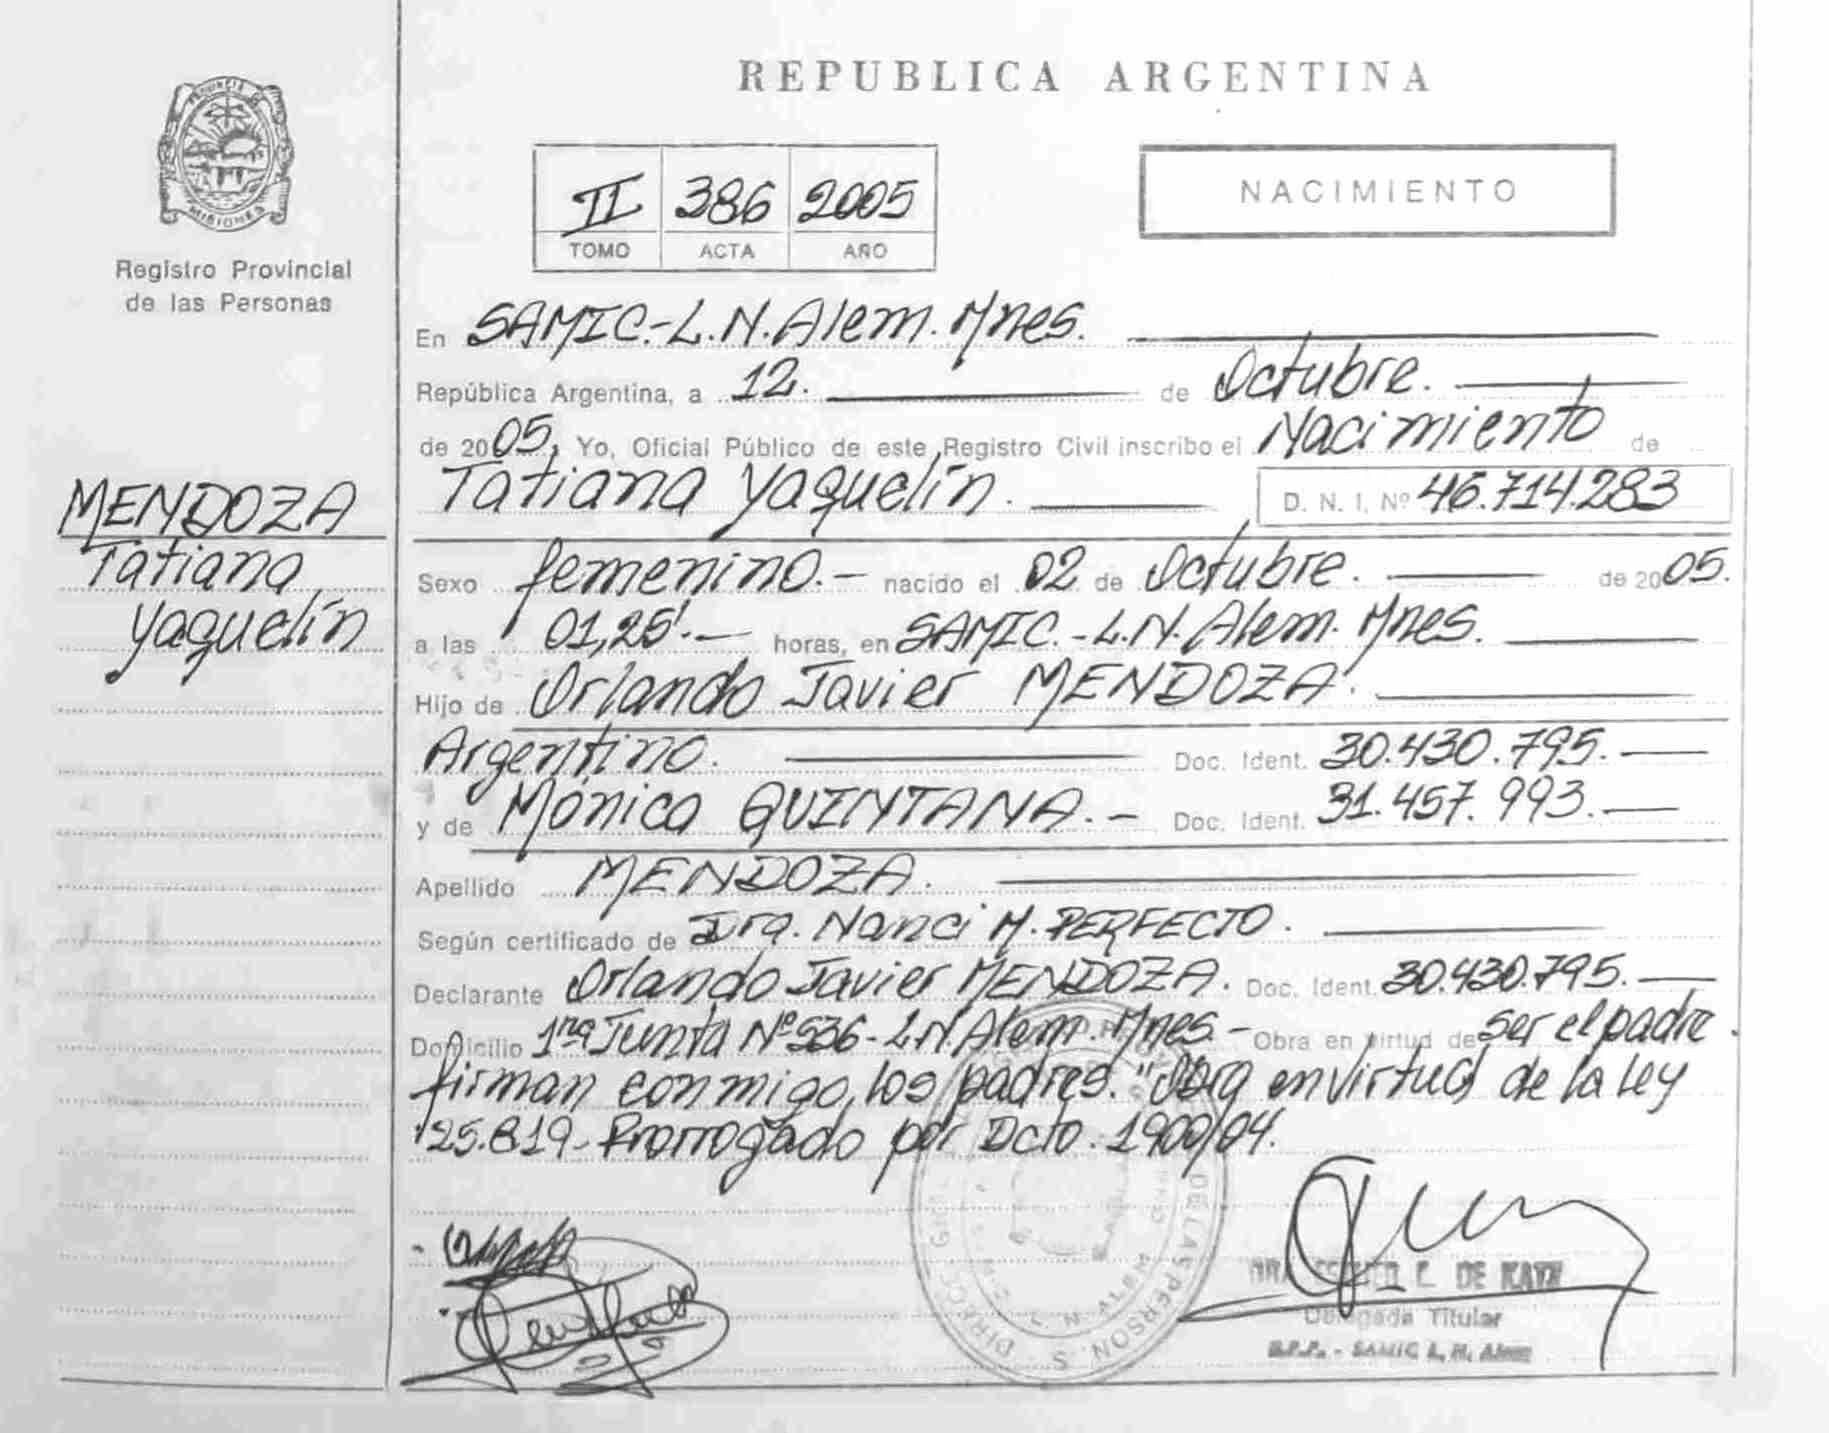 REPUBLICA ARGENTINA
PROVINCIA DE
MISIONES
Registro Provincial
de las Personas
II 386 2005
TOMO ACTA AÑO
NACIMIENTO
MENDOZA
Tatiana
Yaquelín
En SAMIC.-L.N.Alem. Mnes.
República Argentina, a 12. de Octubre.
de 2005, Yo, Oficial Público de este Registro Civil inscribo el Nacimiento de
Tatiana Yaquelín. D. N. I. Nº 46.714.283
Sexo femenino.- nacido el 02 de Octubre. de 2005.
a las 01,25'.- horas, en SAMIC.-L.N. Alem. Mnes.
Hijo de Orlando Javier MENDOZA.
Argentino. Doc. Ident. 30.430.795.-
y de Mónica QUINTANA.- Doc. Ident. 31.457.993.-
Apellido MENDOZA.
Según certificado de Dra. Nanci M. PERFECTO.
Declarante Orlando Javier MENDOZA. Doc. Ident. 30.430.795.-
Domicilio 1ra Junta Nº 536-L.N Alem. Mnes.- Obra en virtud de ser el padre.
firman conmigo, los padres. "Obra en virtud de la Ley
25.819- Prorrogado por Dcto. 1900/04.
DE LAS PERSON
L. N. ALEM
E. DE KATZ
Delegada Titular
R.P.P. - SAMIC L. N. Alem